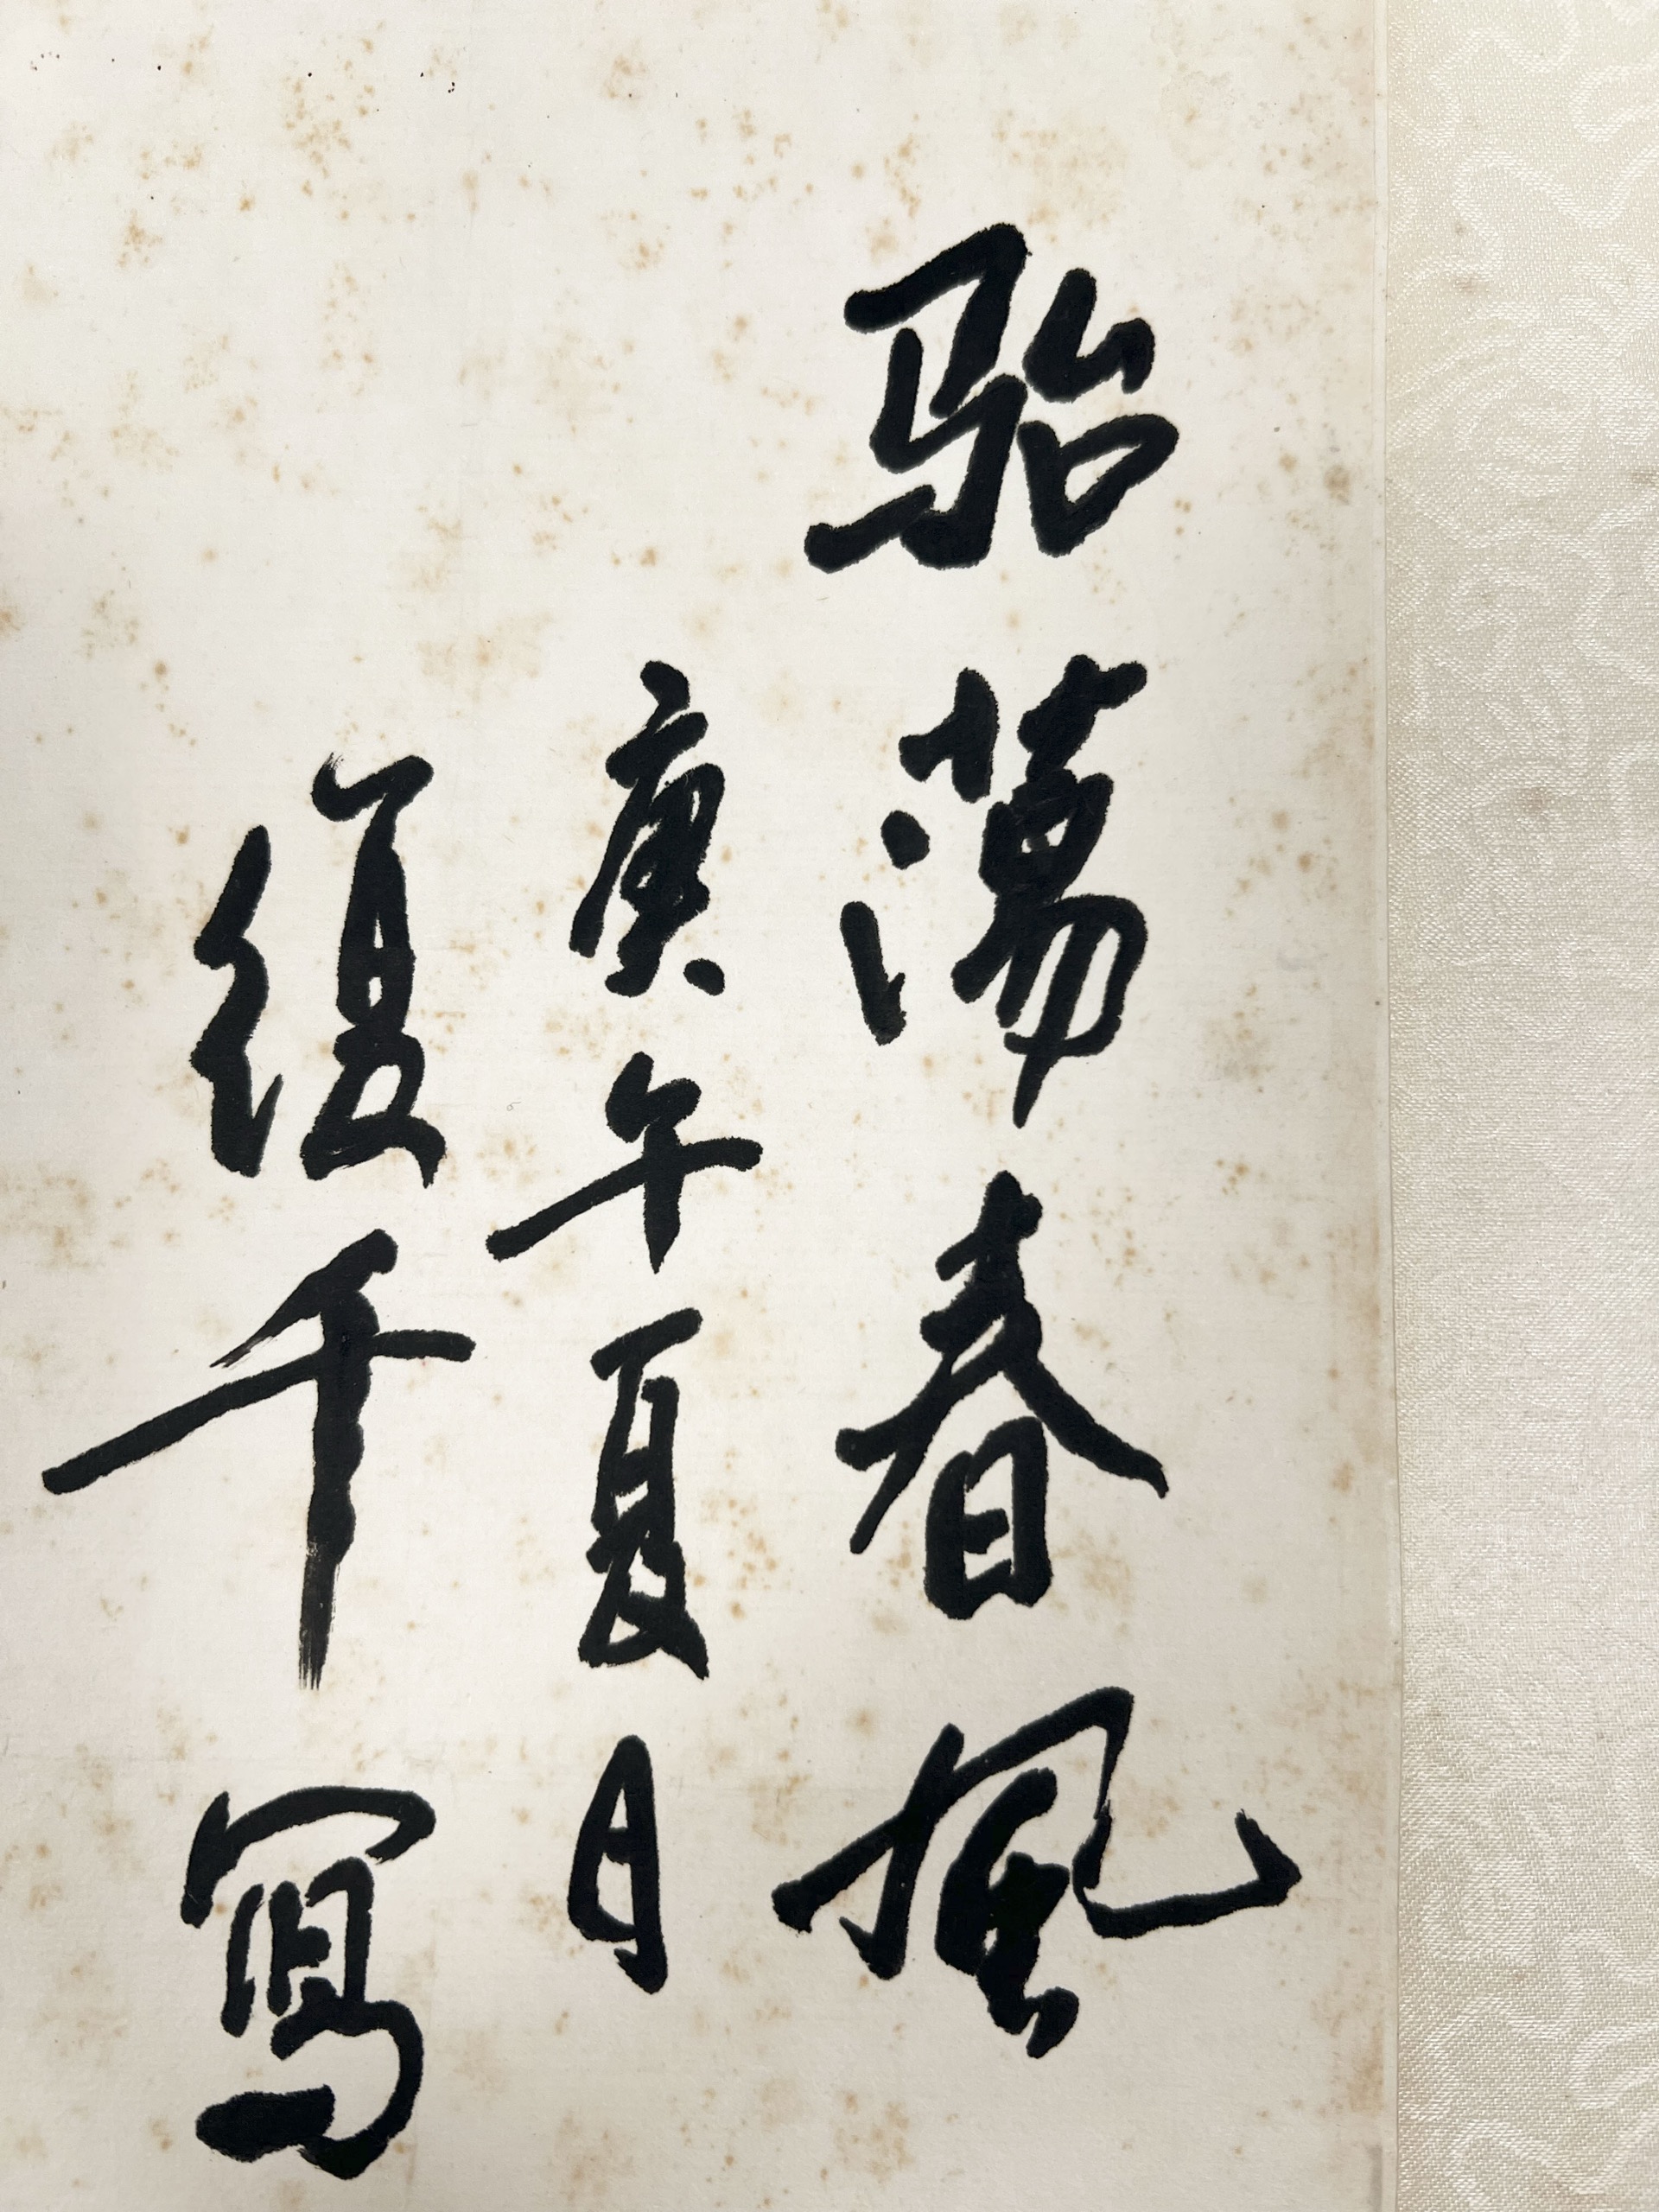 駘蕩春風
庚午夏月
復千寫